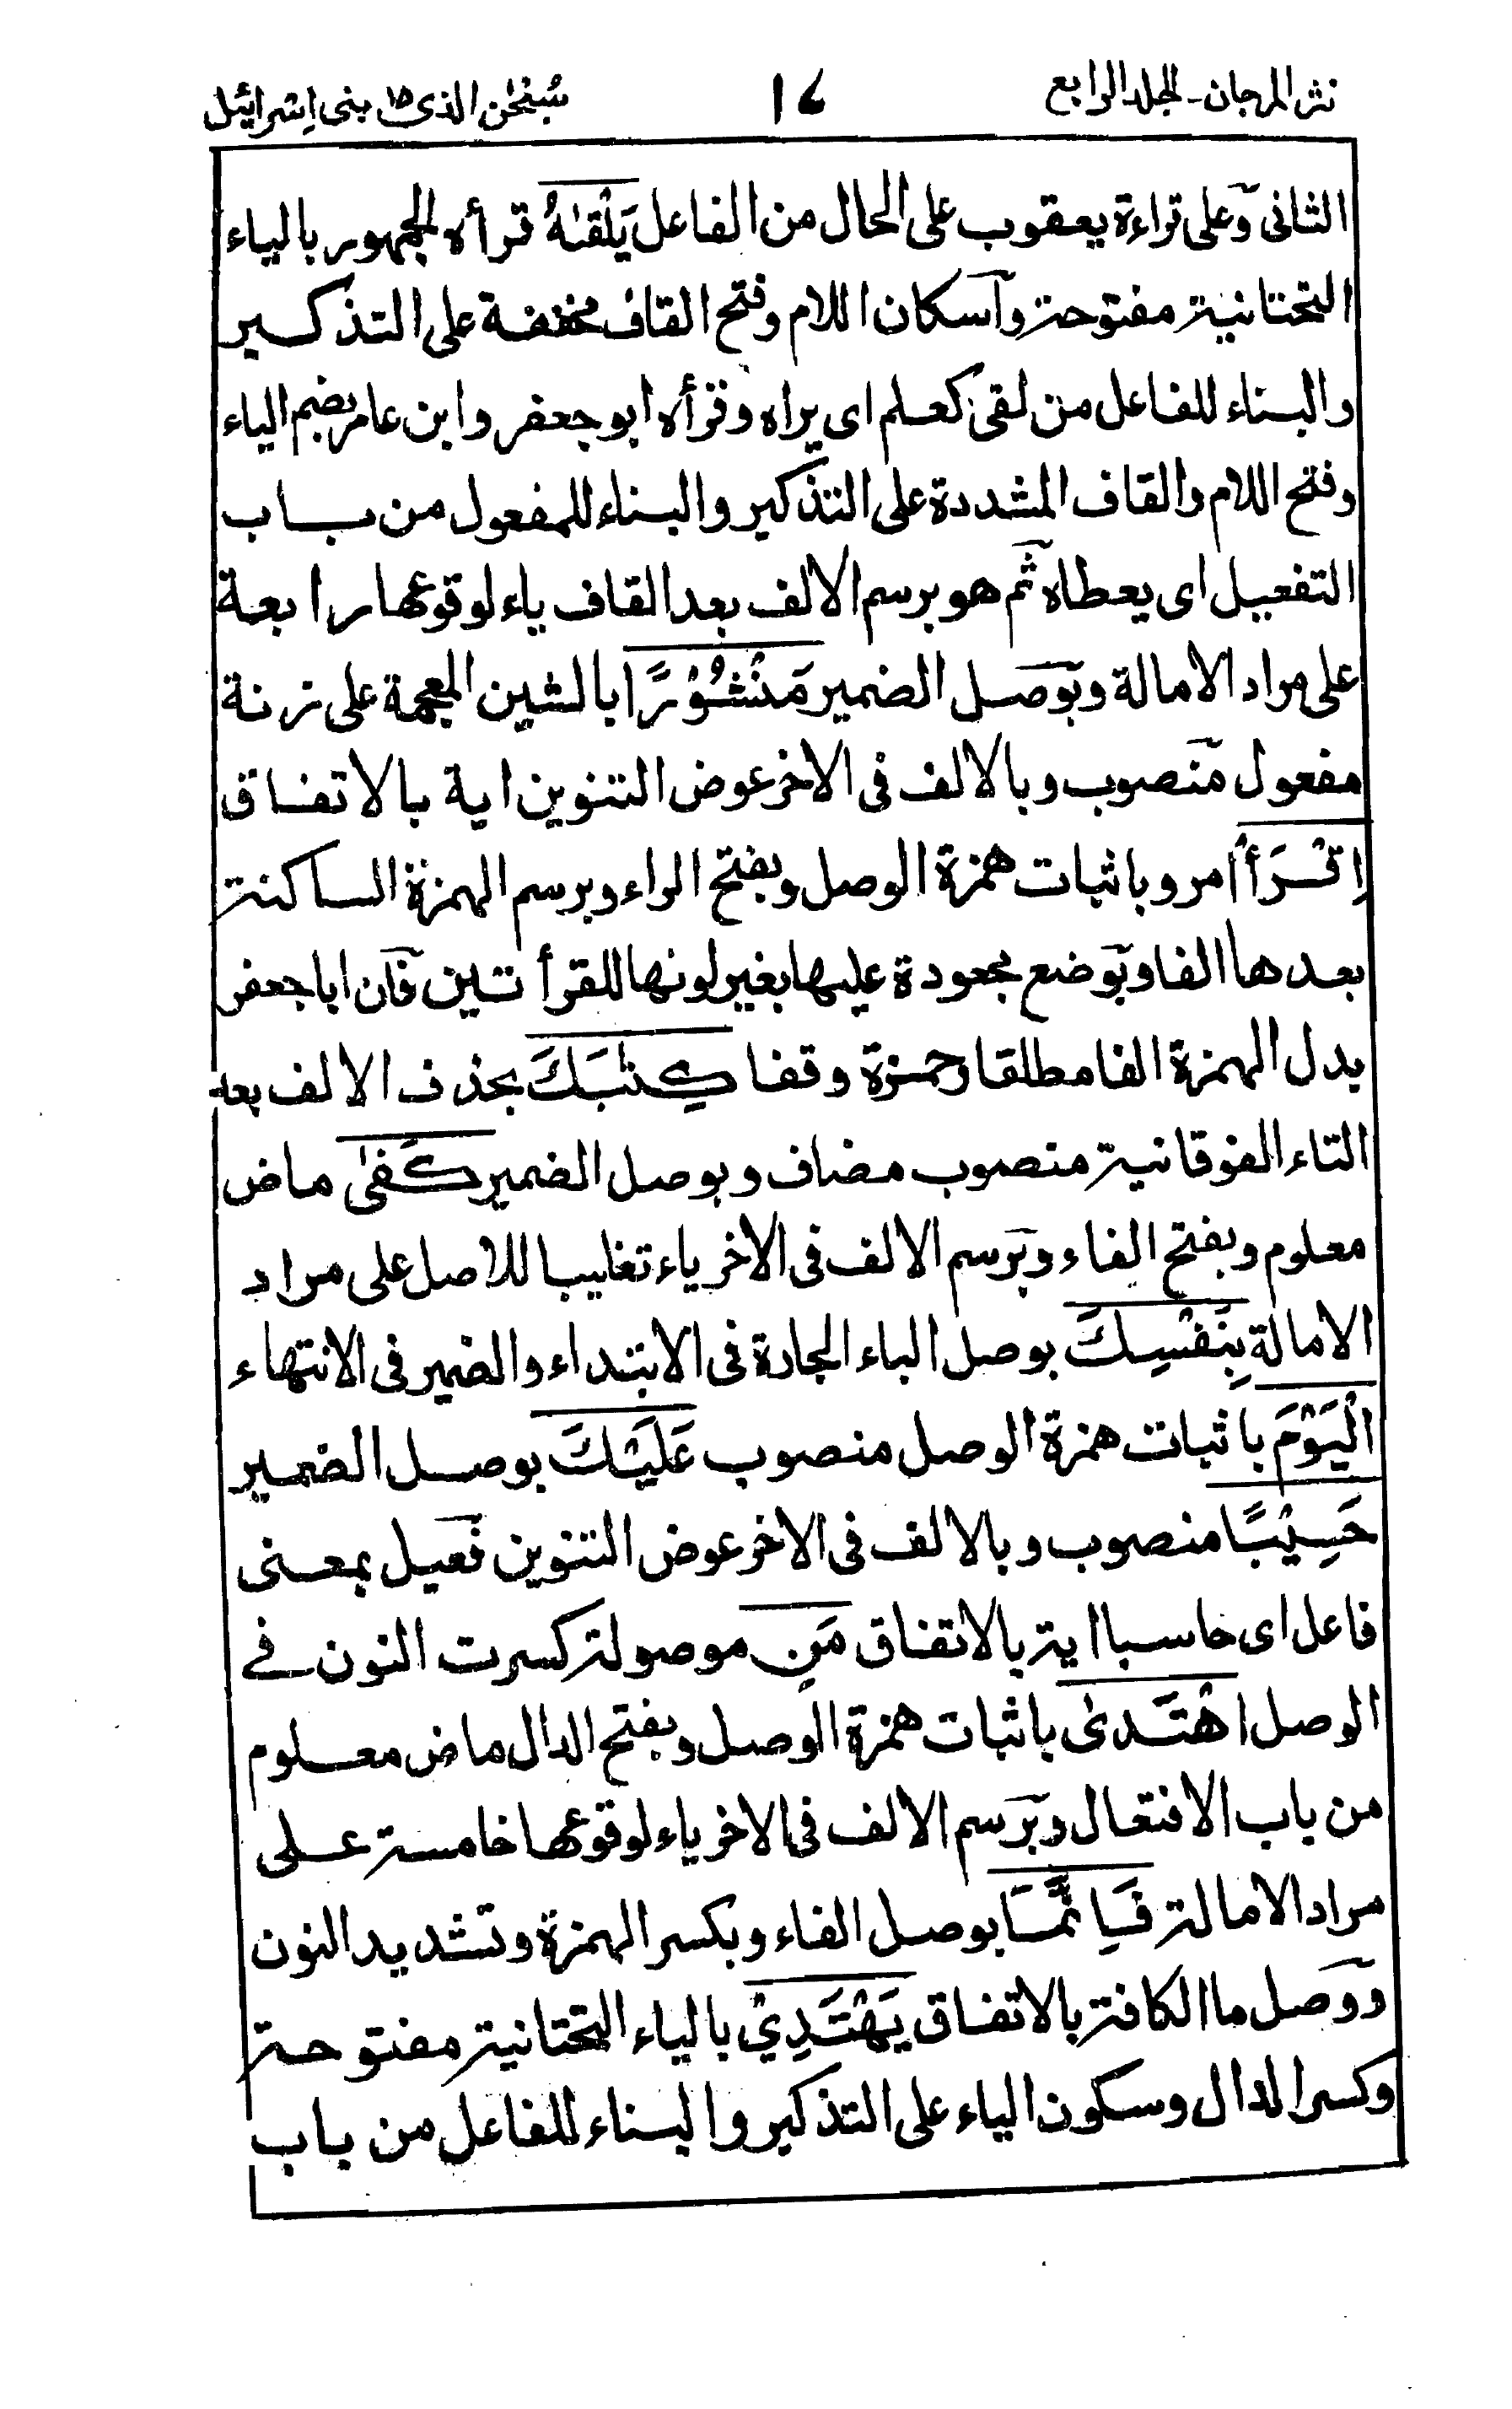 نثر المرجان - الجلد الرابع ١٤ سُبْحٰن الذى ١٥ بنى اسرائيل
الثانى وعلى قراءة يعقوب على الحال من الفاعل يَلْقٰىهُ قرأه الجمهور بالياء
التحتانية مفتوحة وآسكان اللام وفتح القاف مخففة على التذكير
والبناء للفاعل من لقى كعلم اى يراه وقرأه ابو جعفر وابن عامر بضم الياء
وفتح اللام والقاف المشددة على التذكير والبناء للمفعول من باب
التفعيل اى يعطاه ثم هو برسم الالف بعد القاف ياء لوقوعها رابعة
على مراد الامالة وبوصل الضمير مَنْشُوْرًا بالشين المعجمة على زنة
مفعول منصوب وبالالف فى الاخر عوض التنوين اية بالاتفاق
اِقْرَأْ امر وباثبات همزة الوصل وبفتح الراء وبرسم الهمزة الساكنة
بعدها الفا وبوضع مجعودة عليها بغير لونها للقرأتين فان ابا جعفر
يدل الهمزة الفا مطلقا وحمزة وقفا كِتٰبَكَ بحذف الالف بعد
التاء الفوقانية منصوب مضاف وبوصل الضمير كَفٰى ماض
معلوم وبفتح الفاء وبرسم الالف فى الاخر ياء تغليبا للاصل على مراد
الامالة بِنَفْسِكَ بوصل الباء الجارة فى الابتداء والضمير فى الانتهاء
الْيَوْمَ باثبات همزة الوصل منصوب عَلَيْكَ بوصل الضمير
حَسِيْبًا منصوب وبالالف فى الاخر عوض التنوين فعيل بمعنى
فاعل اى حاسبا اية بالاتفاق مَنِ موصولة كسرت النون فے
الوصل اهْتَدٰى باثبات همزة الوصل وبفتح الدال ماض معلوم
من باب الافتعال وبرسم الالف فى الاخر ياء لوقوعها خامسة على
مراد الامالة فَاِنَّمَا بوصل الفاء وبكسر الهمزة وتشديد النون
ووصل ما الكافة بالاتفاق يَهْتَدِيْ بالياء التحتانية مفتوحة
وكسر الدال وسكون الياء على التذكير والبناء للفاعل من باب